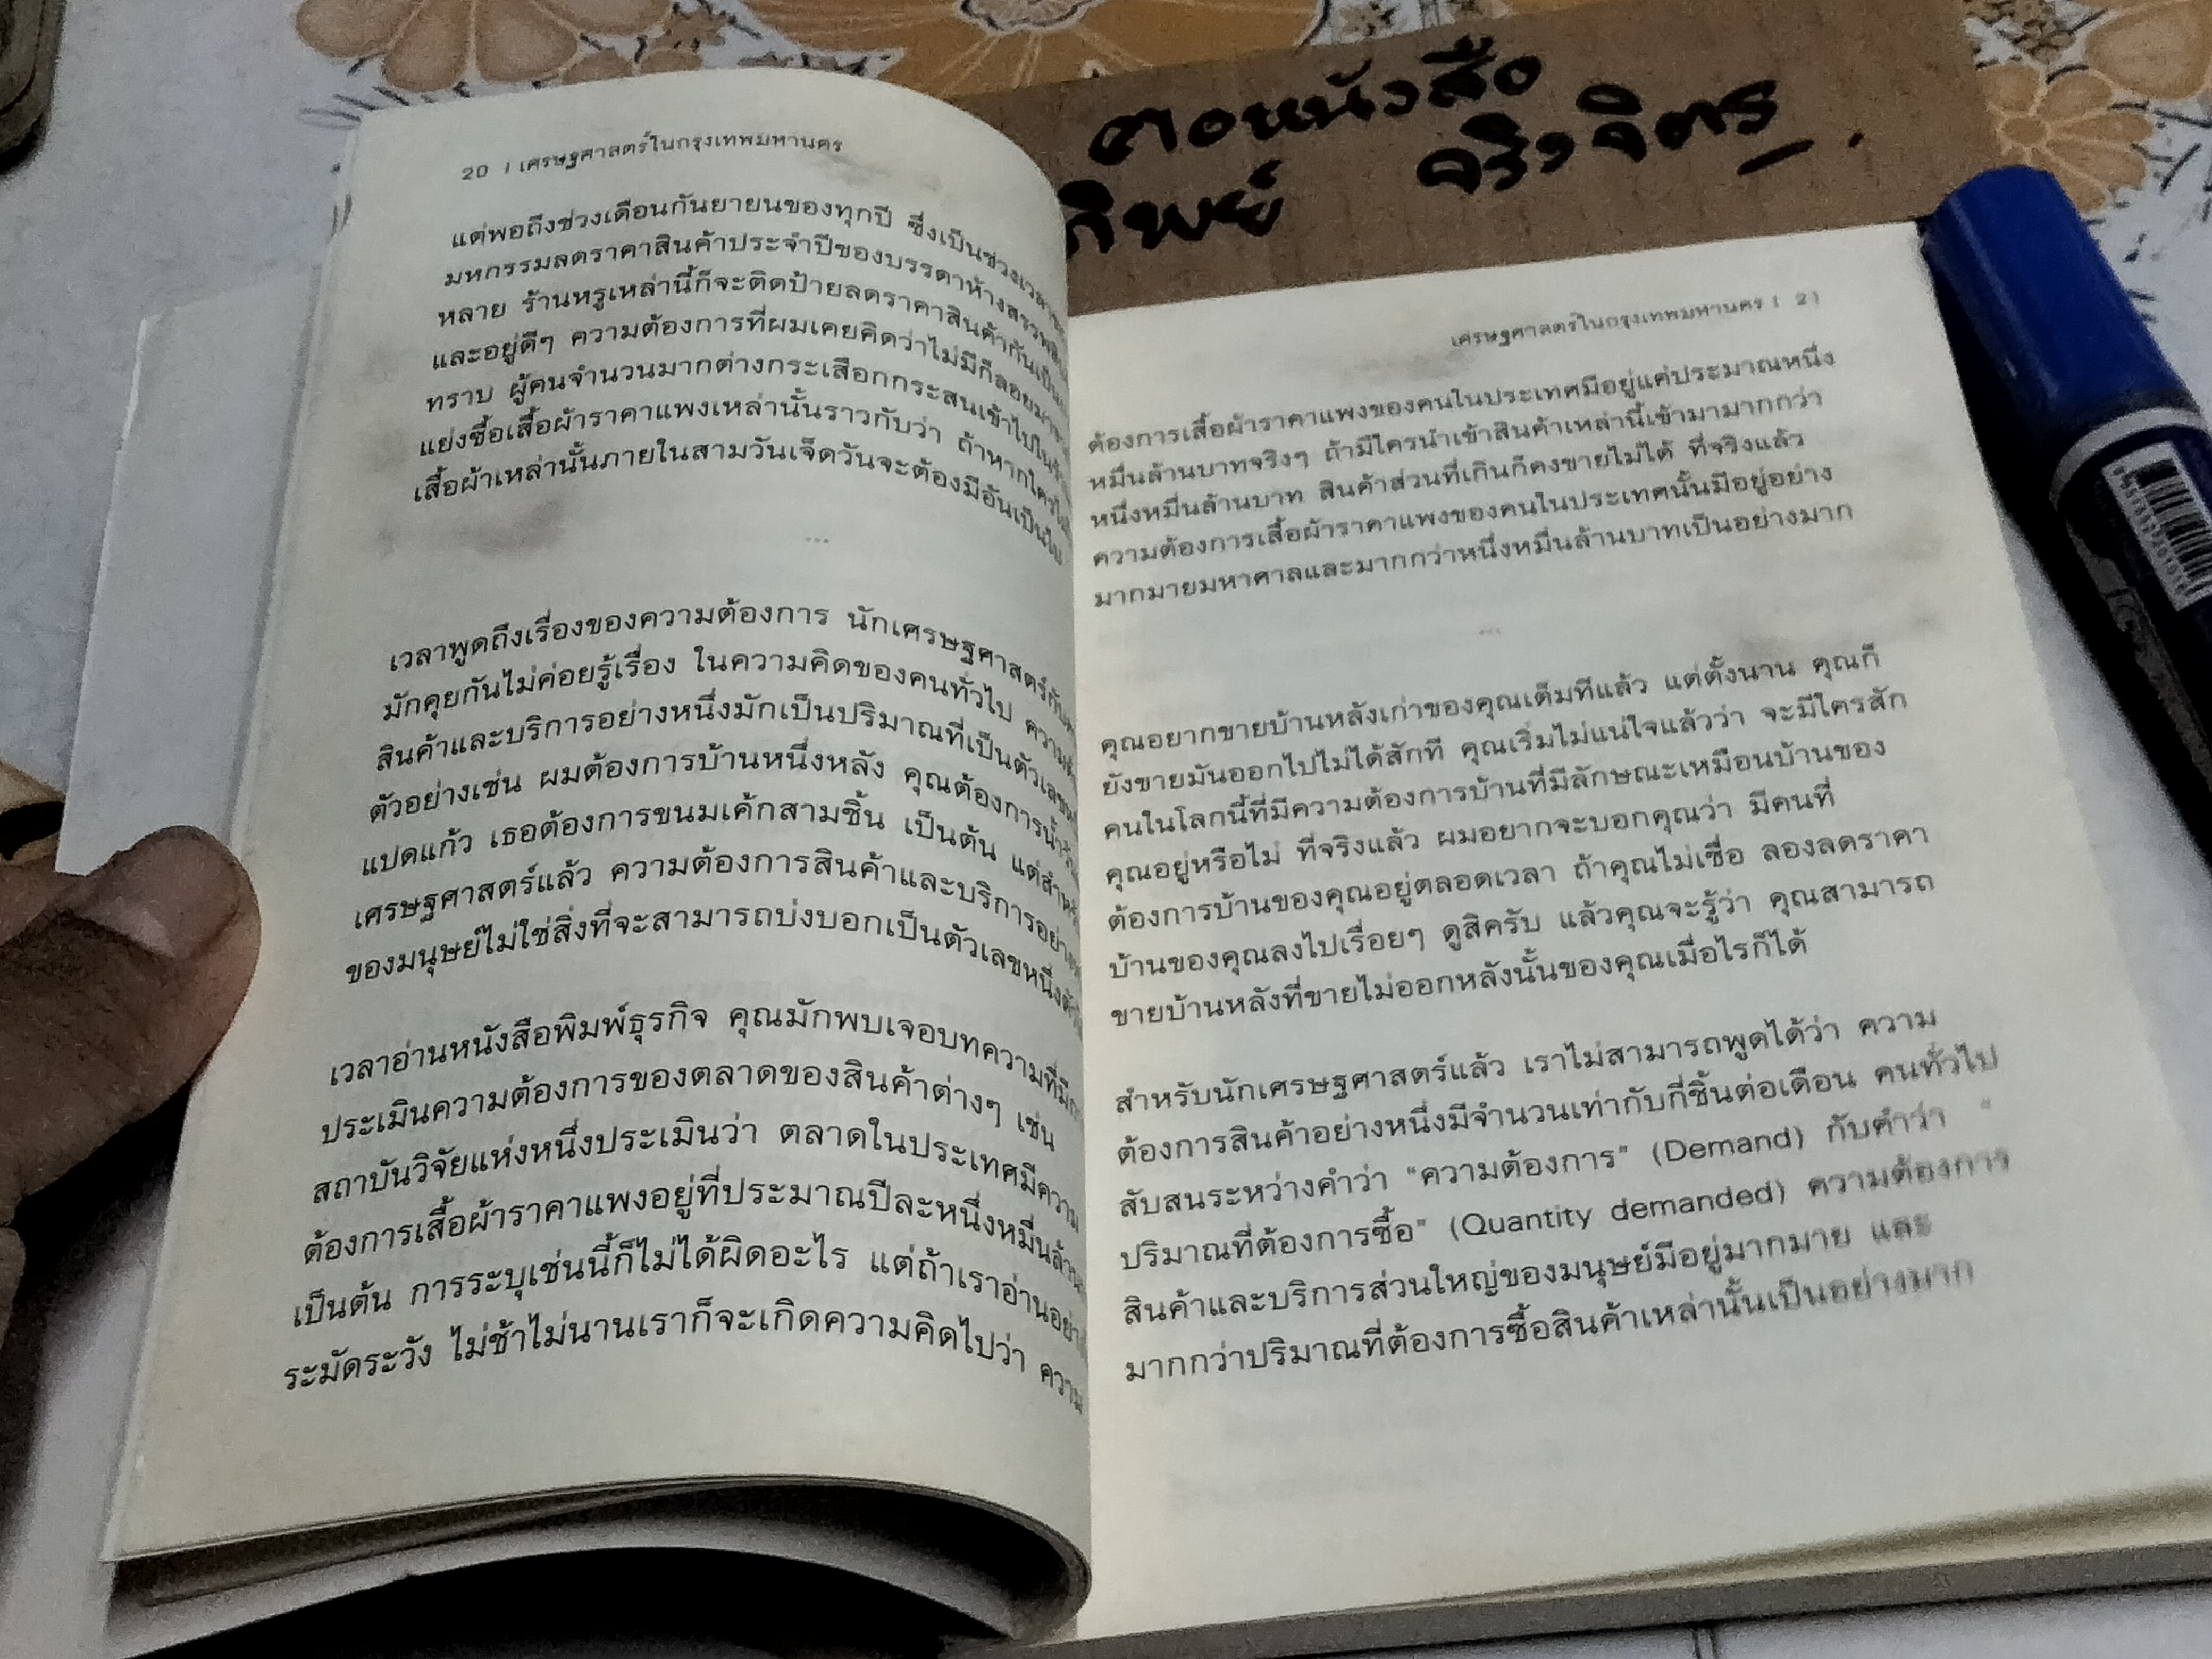 คอหนังสือ
ทิพย์ จริงจิตร
20 | เศรษฐศาสตร์ในกรุงเทพมหานคร
แต่พอถึงช่วงเดือนกันยายนของทุกปี ซึ่งเป็นช่วงเวลา
มหกรรมลดราคาสินค้าประจำปีของบรรดาห้างสรรพสินค้า
หลาย ร้านหรูเหล่านี้ก็จะติดป้ายลดราคาสินค้ากันเป็น
และอยู่ดีๆ ความต้องการที่ผมเคยคิดว่าไม่มีก็ลอยมา
ทราบ ผู้คนจำนวนมากต่างกระเสือกกระสนเข้าไปใน
แย่งซื้อเสื้อผ้าราคาแพงเหล่านั้นราวกับว่า ถ้าหากใคร
เสื้อผ้าเหล่านั้นภายในสามวันเจ็ดวันจะต้องมีอันเป็นไป
...
เวลาพูดถึงเรื่องของความต้องการ นักเศรษฐศาสตร์
มักคุยกันไม่ค่อยรู้เรื่อง ในความคิดของคนทั่วไป
สินค้าและบริการอย่างหนึ่งมักเป็นปริมาณที่เป็นตัวเลข
ตัวอย่างเช่น ผมต้องการบ้านหนึ่งหลัง คุณต้องการน้ำ
แปดแก้ว เธอต้องการขนมเค้กสามชิ้น เป็นต้น แต่
เศรษฐศาสตร์แล้ว ความต้องการสินค้าและบริการ
ของมนุษย์ไม่ใช่สิ่งที่จะสามารถบ่งบอกเป็นตัวเลขหนึ่ง
เวลาอ่านหนังสือพิมพ์ธุรกิจ คุณมักพบเจอบทความที่มี
ประเมินความต้องการของตลาดของสินค้าต่างๆ เช่น
สถาบันวิจัยแห่งหนึ่งประเมินว่า ตลาดในประเทศมีความ
ต้องการเสื้อผ้าราคาแพงอยู่ที่ประมาณปีละหนึ่งหมื่นล้าน
เป็นต้น การระบุเช่นนี้ก็ไม่ได้ผิดอะไร แต่ถ้าเราอ่าน
ระมัดระวัง ไม่ช้าไม่นานเราก็จะเกิดความคิดไปว่า ความ
เศรษฐศาสตร์ในกรุงเทพมหานคร | 21
ต้องการเสื้อผ้าราคาแพงของคนในประเทศมีอยู่แค่ประมาณหนึ่ง
หมื่นล้านบาทจริงๆ ถ้ามีใครนำเข้าสินค้าเหล่านี้เข้ามามากกว่า
หนึ่งหมื่นล้านบาท สินค้าส่วนที่เกินก็คงขายไม่ได้ ที่จริงแล้ว
ความต้องการเสื้อผ้าราคาแพงของคนในประเทศนั้นมีอยู่อย่าง
มากมายมหาศาลและมากกว่าหนึ่งหมื่นล้านบาทเป็นอย่างมาก
...
คุณอยากขายบ้านหลังเก่าของคุณเต็มทีแล้ว แต่ตั้งนาน คุณก็
ยังขายมันออกไปไม่ได้สักที คุณเริ่มไม่แน่ใจแล้วว่า จะมีใครสัก
คนในโลกนี้ที่มีความต้องการบ้านที่มีลักษณะเหมือนบ้านของ
คุณอยู่หรือไม่ ที่จริงแล้ว ผมอยากจะบอกคุณว่า มีคนที่
ต้องการบ้านของคุณอยู่ตลอดเวลา ถ้าคุณไม่เชื่อ ลองลดราคา
บ้านของคุณลงไปเรื่อยๆ ดูสิครับ แล้วคุณจะรู้ว่า คุณสามารถ
ขายบ้านหลังที่ขายไม่ออกหลังนั้นของคุณเมื่อไรก็ได้
สำหรับนักเศรษฐศาสตร์แล้ว เราไม่สามารถพูดได้ว่า ความ
ต้องการสินค้าอย่างหนึ่งมีจำนวนเท่ากับกี่ชิ้นต่อเดือน คนทั่วไป
สับสนระหว่างคำว่า “ความต้องการ” (Demand) กับคำว่า “
ปริมาณที่ต้องการซื้อ” (Quantity demanded) ความต้องการ
สินค้าและบริการส่วนใหญ่ของมนุษย์มีอยู่มากมาย และ
มากกว่าปริมาณที่ต้องการซื้อสินค้าเหล่านั้นเป็นอย่างมาก